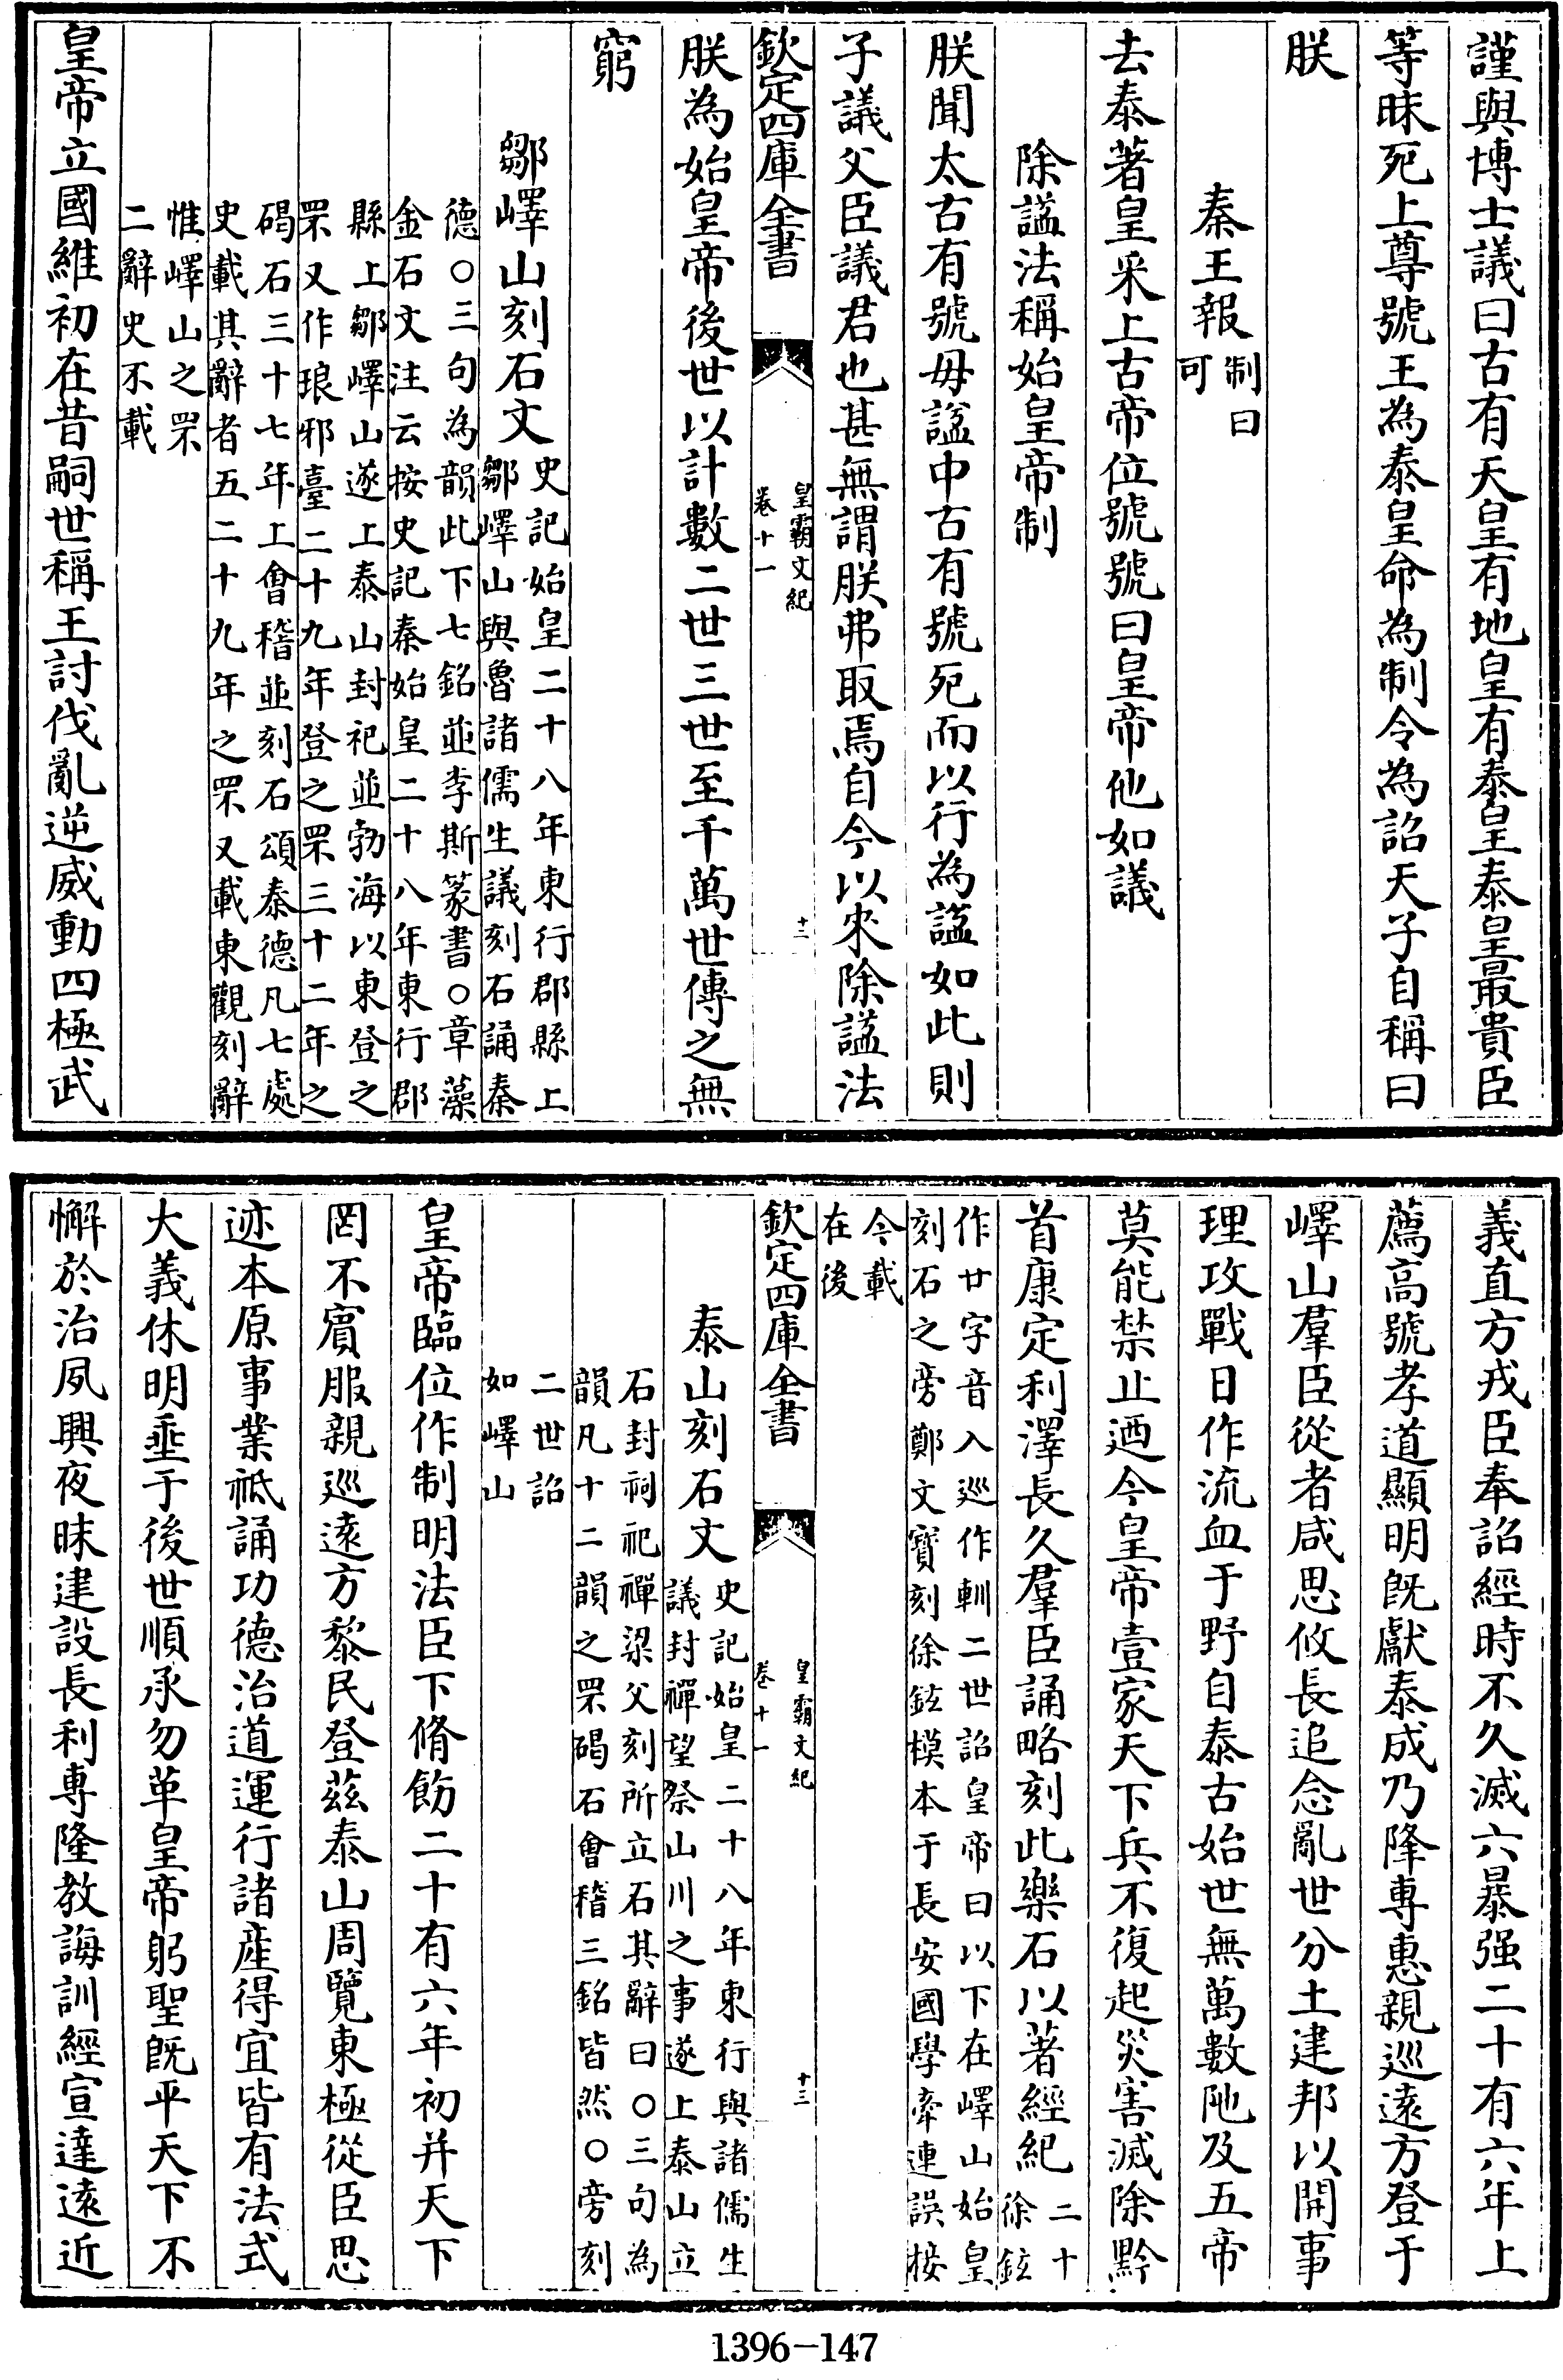 謹與博士議曰古有天皇有地皇有泰皇泰皇最貴臣
等昧死上尊號王為泰皇命為制令為詔天子自稱曰
朕
秦王報
制曰
可
去泰著皇采上古帝位號號曰皇帝他如議
除謚法稱始皇帝制
朕聞太古有號毋諡中古有號死而以行為諡如此則
子議父臣議君也甚無謂朕弗取焉自今以來除謚法
欽定四庫全書
皇霸文紀
卷十一
十二
朕為始皇帝後世以計數二世三世至千萬世傳之無
窮
鄒嶧山刻石文
史記始皇二十八年東行郡縣上
鄒嶧山與魯諸儒生議刻石誦秦
德○三句為韻此下七銘並李斯篆書○章藻
金石文注云按史記秦始皇二十八年東行郡
縣上鄒嶧山遂上泰山封祀並勃海以東登之
罘又作琅邪臺二十九年登之罘三十二年之
碣石三十七年上會稽並刻石頌秦德凡七處
史載其辭者五二十九年之罘又載東觀刻辭
惟嶧山之罘
二辭史不載
皇帝立國維初在昔嗣世稱王討伐亂逆威動四極武
義直方戎臣奉詔經時不久滅六暴强二十有六年上
薦高號孝道顯明旣獻泰成乃降專惠親巡遠方登于
嶧山羣臣從者咸思攸長追念亂世分土建邦以開事
理攻戰日作流血于野自泰古始世無萬數阤及五帝
莫能禁止迺今皇帝壹家天下兵不復起災害滅除黔
首康定利澤長久羣臣誦略刻此樂石以著經紀
二十
徐鉉
作廿字音入巡作軐二世詔皇帝曰以下在嶧山始皇
刻石之旁鄭文寶刻徐鉉模本于長安國學牽連誤按
今載
在後
欽定四庫全書
皇霸文紀
卷十一
十三
泰山刻石文
史記始皇二十八年東行與諸儒生
議封禪望祭山川之事遂上泰山立
石封祠祀禪梁父刻所立石其辭曰○三句為
韻凡十二韻之罘碣石會稽三銘皆然○旁刻
二世詔
如嶧山
皇帝臨位作制明法臣下脩飭二十有六年初并天下
罔不賓服親巡遠方黎民登茲泰山周覽東極從臣思
迹本原事業祗誦功德治道運行諸產得宜皆有法式
大義休明垂于後世順承勿革皇帝躬聖旣平天下不
懈於治夙興夜昧建設長利専隆教誨訓經宣達遠近
1396-147